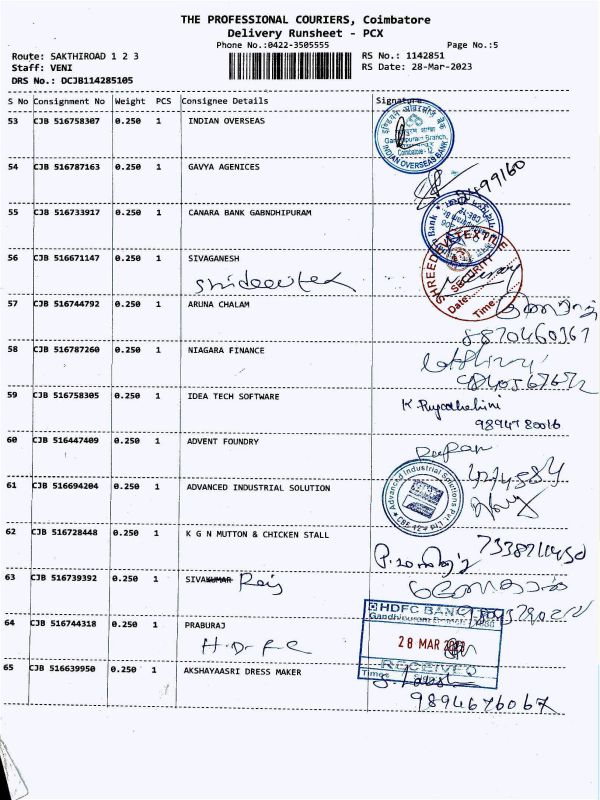 THE PROFESSIONAL COURIERS, Coimbatore
Delivery Runsheet - PCX
Phone No.:0422-3505555 Page No.:5
Route: SAKTHIROAD 1 2 3 RS No.: 1142851
Staff: VENI RS Date: 28-Mar-2023
DRS No.: DCJB114285105
S No Consignment No Weight PCS Consignee Details Signature
53 CJB 516758307 0.250 1 INDIAN OVERSEAS
INDIAN OVERSEAS BANK
Coimbatore - 12
54 CJB 516787163 0.250 1 GAVYA AGENICES
55 CJB 516733917 0.250 1 CANARA BANK GABNDHIPURAM
Bank
56 CJB 516671147 0.250 1 SIVAGANESH
SECURITY
Date: Time:
57 CJB 516744792 0.250 1 ARUNA CHALAM
8870460367
58 CJB 516787260 0.250 1 NIAGARA FINANCE
59 CJB 516758305 0.250 1 IDEA TECH SOFTWARE
9894780016
60 CJB 516447409 0.250 1 ADVENT FOUNDRY
61 CJB 516694204 0.250 1 ADVANCED INDUSTRIAL SOLUTION
Advanced Industrial Solutions Pvt Ltd
62 CJB 516728448 0.250 1 K G N MUTTON & CHICKEN STALL
63 CJB 516739392 0.250 1 SIVAKUMAR
64 CJB 516744318 0.250 1 PRABURAJ
H.D.F.C
HDFC BANK LTD
28 MAR
RECEIVED
Time:
65 CJB 516639950 0.250 1 AKSHAYAASRI DRESS MAKER
9894676067